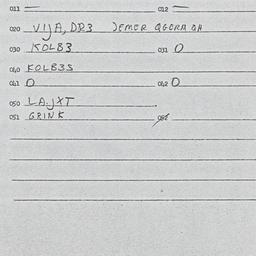 011 — 012 —
020 VIJA, DR3 JEMER QGORA OH
030 KOLB3 031 O
040 KOLB3S
041 O 042 O
050 LAJXT
051 GRINK 052